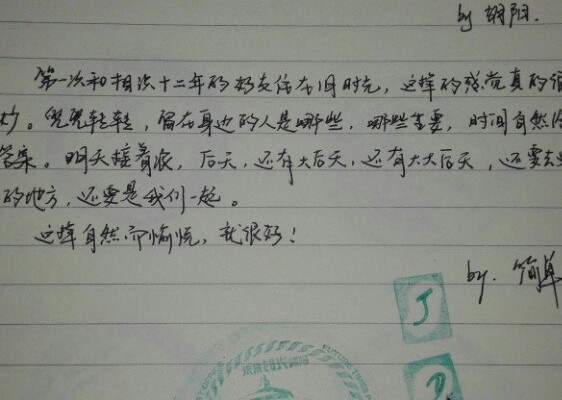 by 朝阳.
第一次和相识十二年的好友住在旧时光,这样的感觉真的很
妙。兜兜转转,留在身边的人是哪些,哪些重要,时间自然给
答案。明天接着浪,后天,还有大后天,还有大大后天,还要去
的地方,还要是我们一起。
这样自然而愉悦,就很好!
by. 简单
J